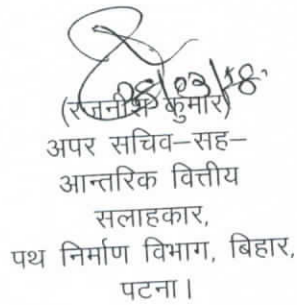 08/03/18
(रजनीश कुमार)
अपर सचिव–सह–
आन्तरिक वित्तीय
सलाहकार,
पथ निर्माण विभाग, बिहार,
पटना।